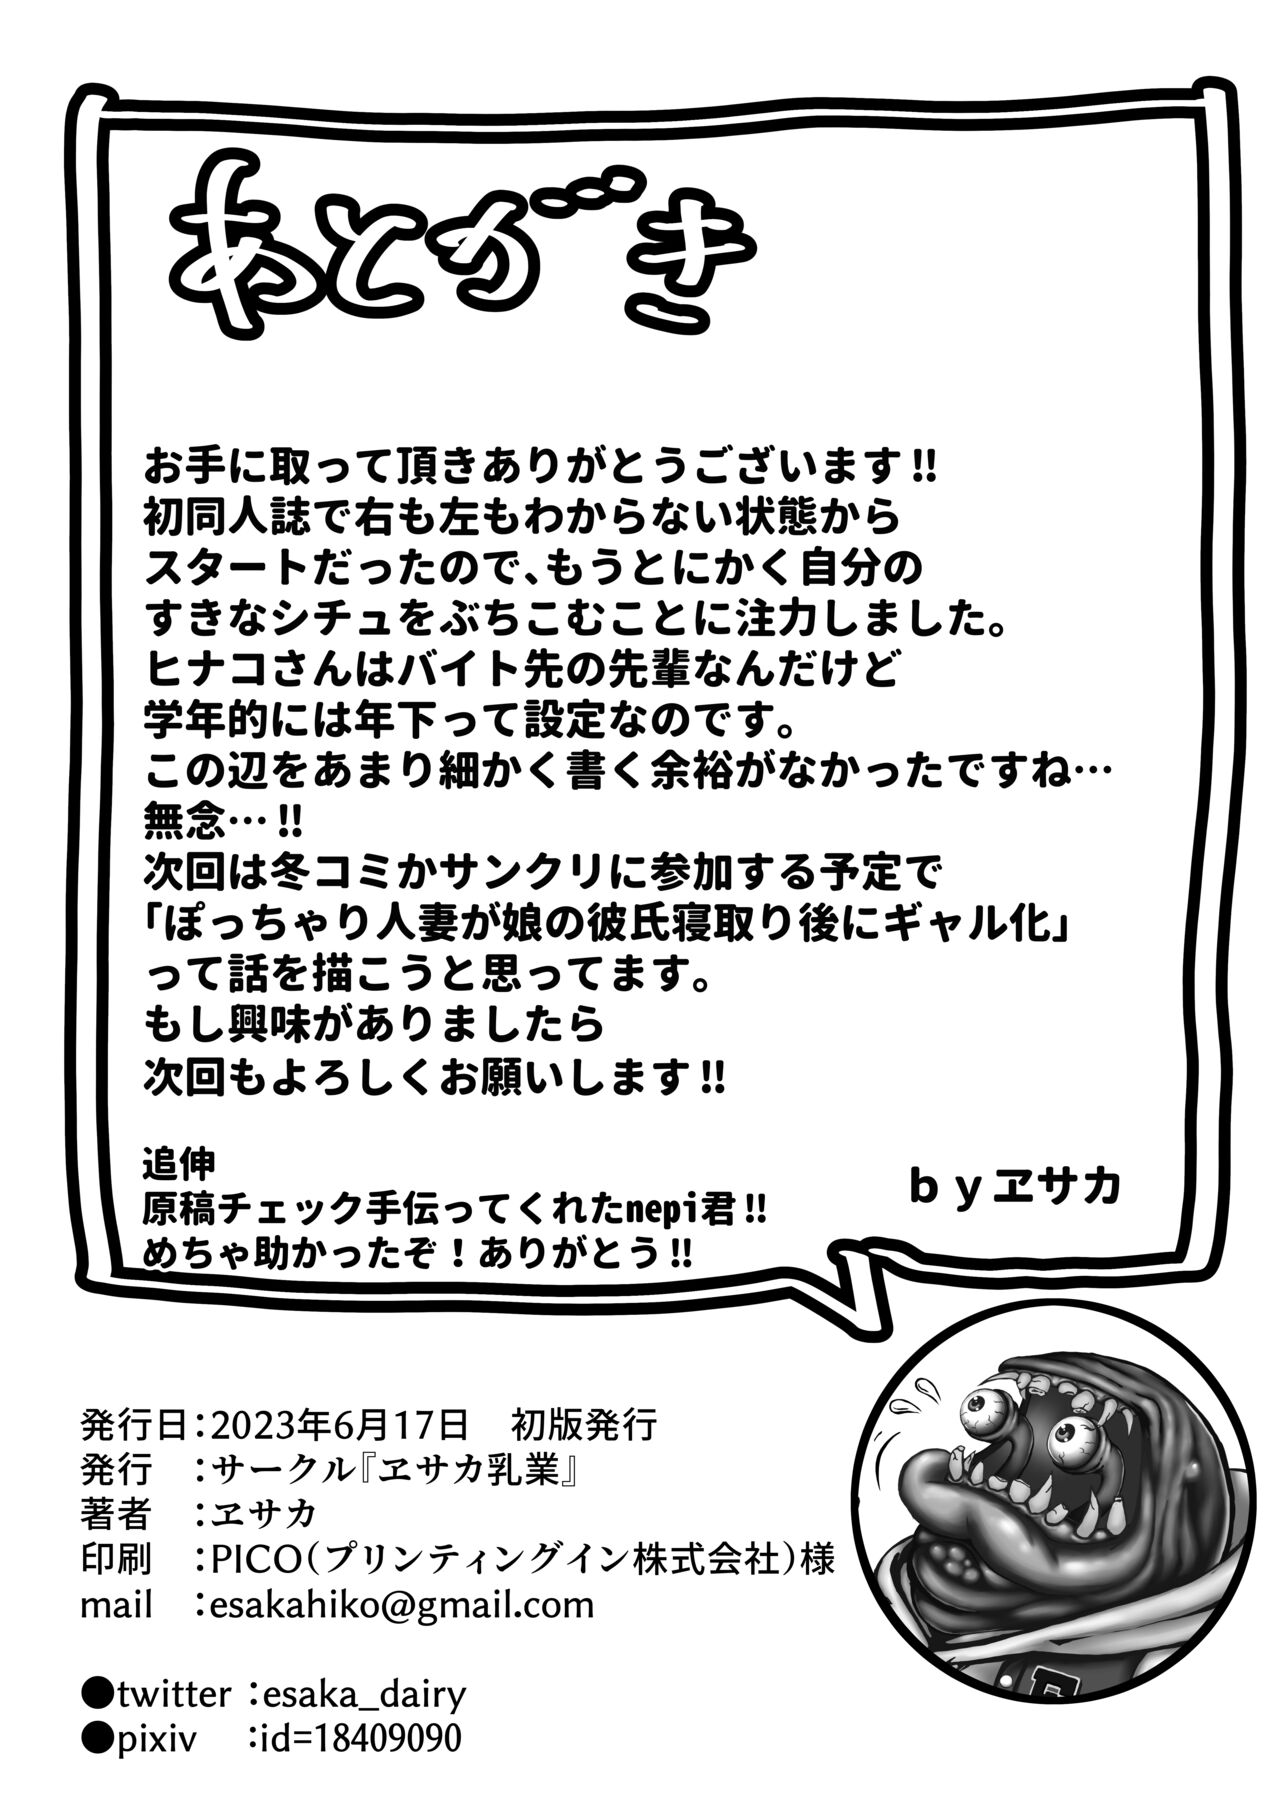 あとがき
お手に取って頂きありがとうございます‼
初同人誌で右も左もわからない状態から
スタートだったので、もうとにかく自分の
すきなシチュをぶちこむことに注力しました。
ヒナコさんはバイト先の先輩なんだけど
学年的には年下って設定なのです。
この辺をあまり細かく書く余裕がなかったですね…
無念…‼
次回は冬コミかサンクリに参加する予定で
「ぽっちゃり人妻が娘の彼氏寝取り後にギャル化」
って話を描こうと思ってます。
もし興味がありましたら
次回もよろしくお願いします‼
追伸
原稿チェック手伝ってくれたnepi君‼
めちゃ助かったぞ！ありがとう‼
ｂｙヱサカ
発行日：2023年6月17日　初版発行
発行　：サークル『ヱサカ乳業』
著者　：ヱサカ
印刷　：PICO（プリンティングイン株式会社）様
mail　：esakahiko@gmail.com
●twitter：esaka_dairy
●pixiv　：id=18409090